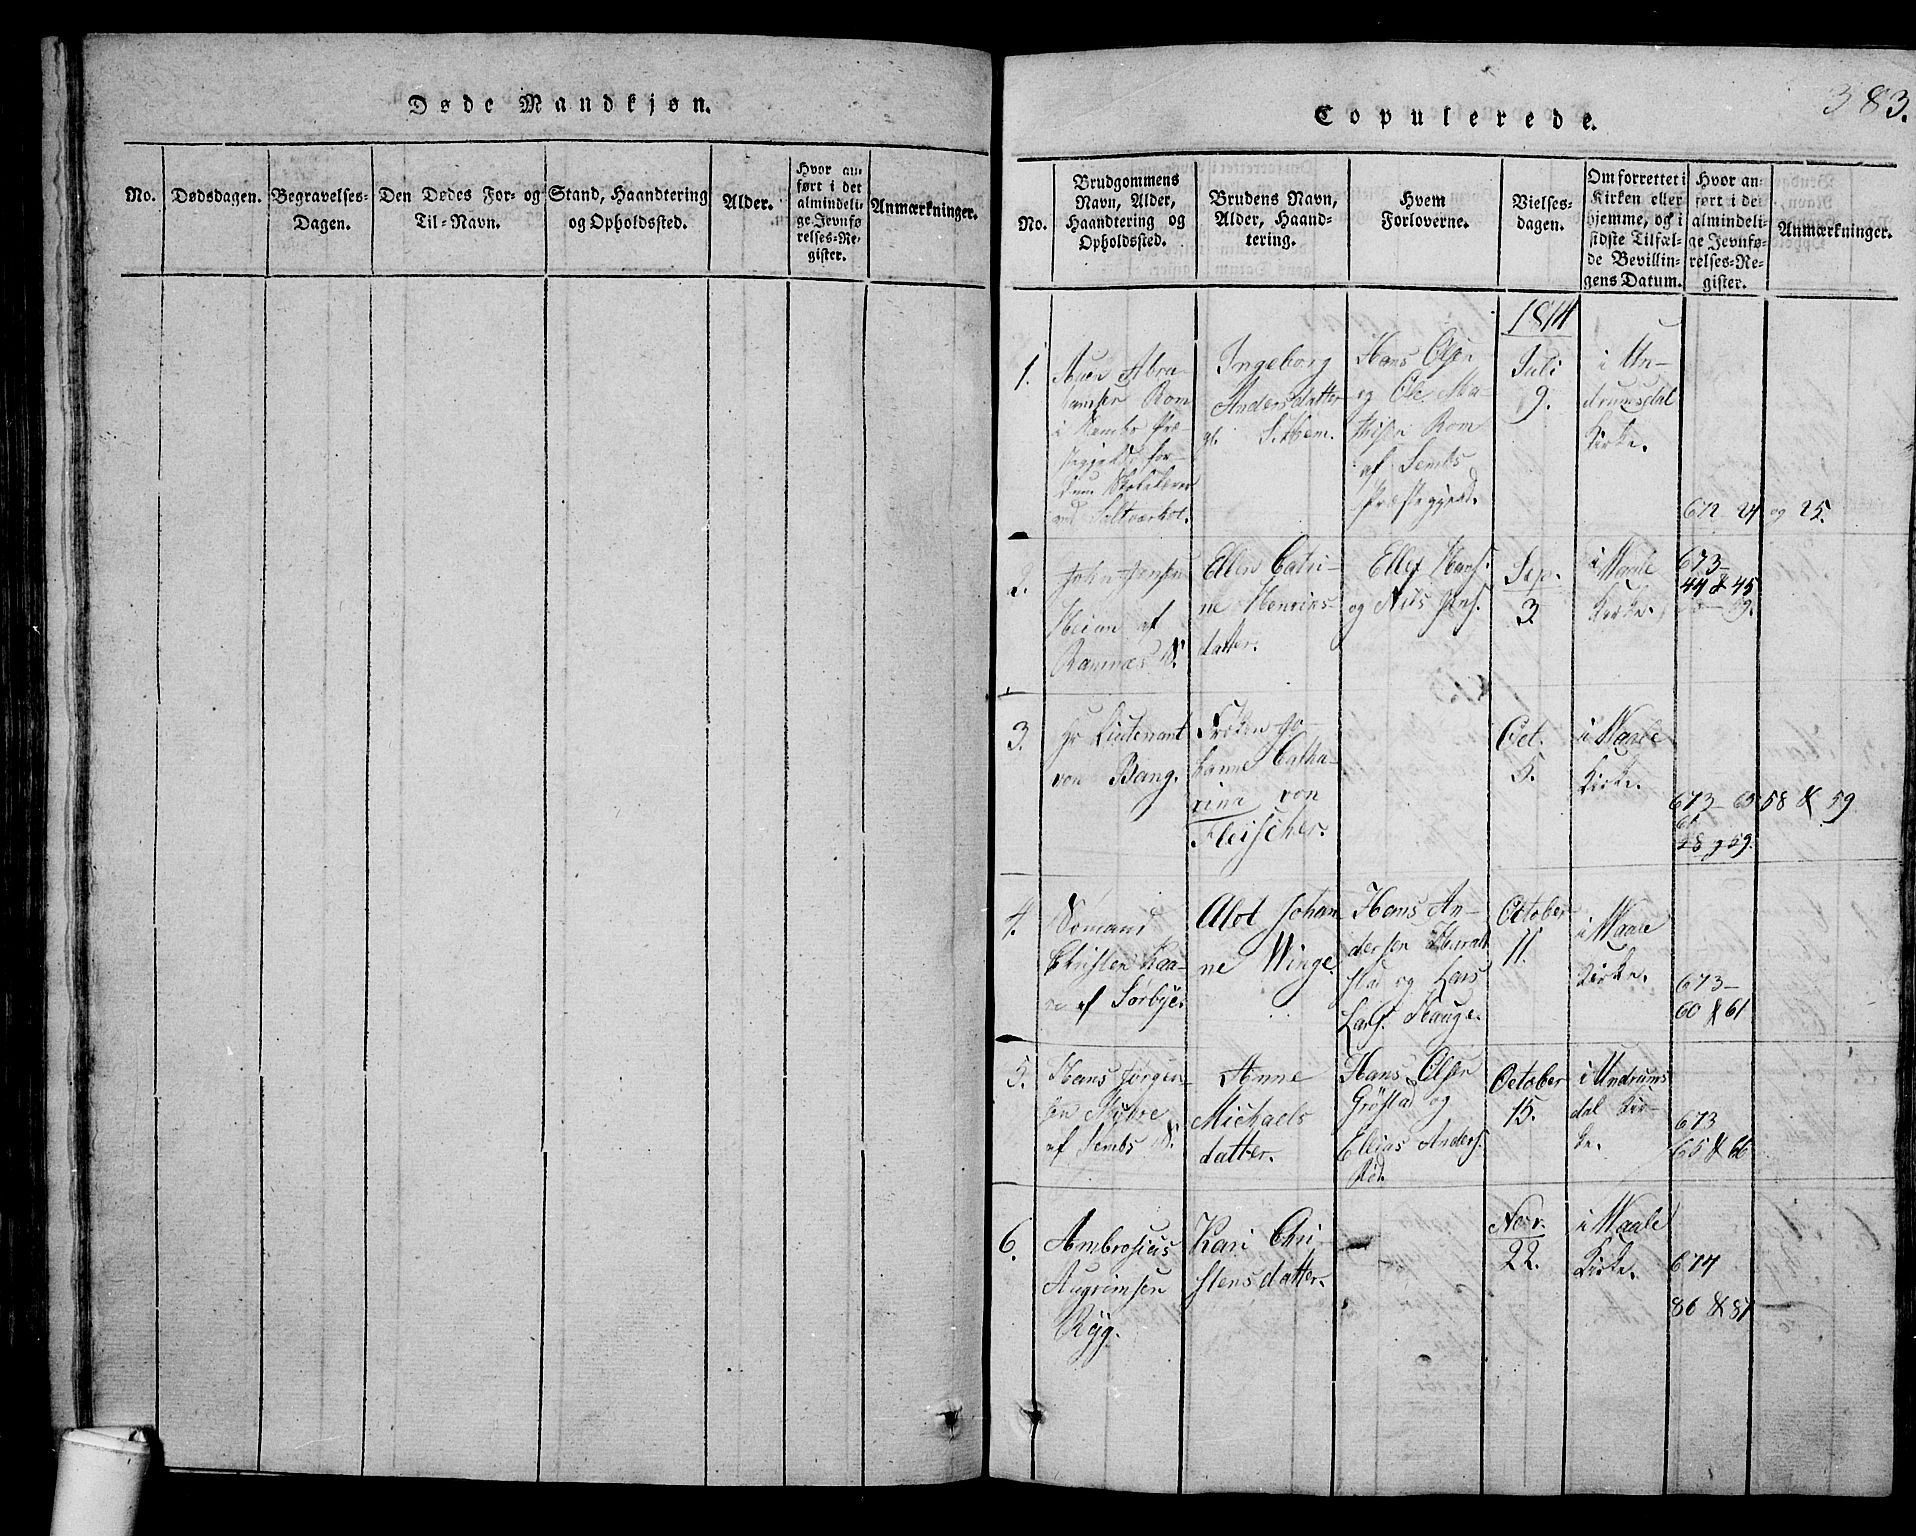 Døde Mandkjøn.
No.
Dødsdagen.
Begravelses-
Dagen.
Den Dødes For- og
Til-Navn.
Stand, Haandtering
og Opholdssted.
Alder.
Hvor an-
ført i det
almindeli-
ge Jevnfø-
relses-Re-
gister.
Anmærkninger.
Copulerede.
383.
No.
Brudgommens
Navn, Alder,
Haandtering og
Opholdssted.
Brudens Navn,
Alder, Haand-
tering.
Hvem
Forloverne.
Vielses-
dagen.
Om forrettet i
Kirken eller
hjemme, og i
sidste Tilfæl-
de Bevillin-
gens Datum.
Hvor an-
ført i det
almindeli-
ge Jevnfø-
relses-Re-
gister.
Anmærkninger.
1814
1.
Abra-
hamsen Rom
i
for-
ved Saltværket.
Ingeborg
Andersdatter
Hans Olsen
og Ole Ma-
thisen Rom
af Sembs
Præstegjeld.
Juli
9.
i Un-
drumsdal
Kirke.
672 24 og 25.
2.
John Jensen
af
Ramnæs
Ellen Catri-
ne Henrics-
datter.
Ellef Hans.
og Nils Jens.
Sep.
3.
i Waale
Kirke.
673-
44 & 45
3.
Hr Lieutenant
von Bang.
Frøken Jo-
hanne Catha-
rina von
Fleischer.
Oct.
5.
i Waale
Kirke.
673- 58 & 59
4.
Sømand
Christen
af Sørbye.
Johan-
ne Winge.
Hans An-
dersen
stad og Hans
Lars. Hauge.
October
11.
i Waale
Kirke.
673-
60 & 61
5.
Hans Jørgen-
sen
af Sembs
Anne
Michaels
datter.
Hans Olsen
Grøstad og
Elias Anders.
Rød.
October
15.
i Undrums
dal Kir-
ke.
673
65 & 66
6.
Ambrosius
Augrimsen
Ryg.
Kari Chri-
stensdatter.
Nov.
22.
i Waale
Kirke.
674
86 & 87